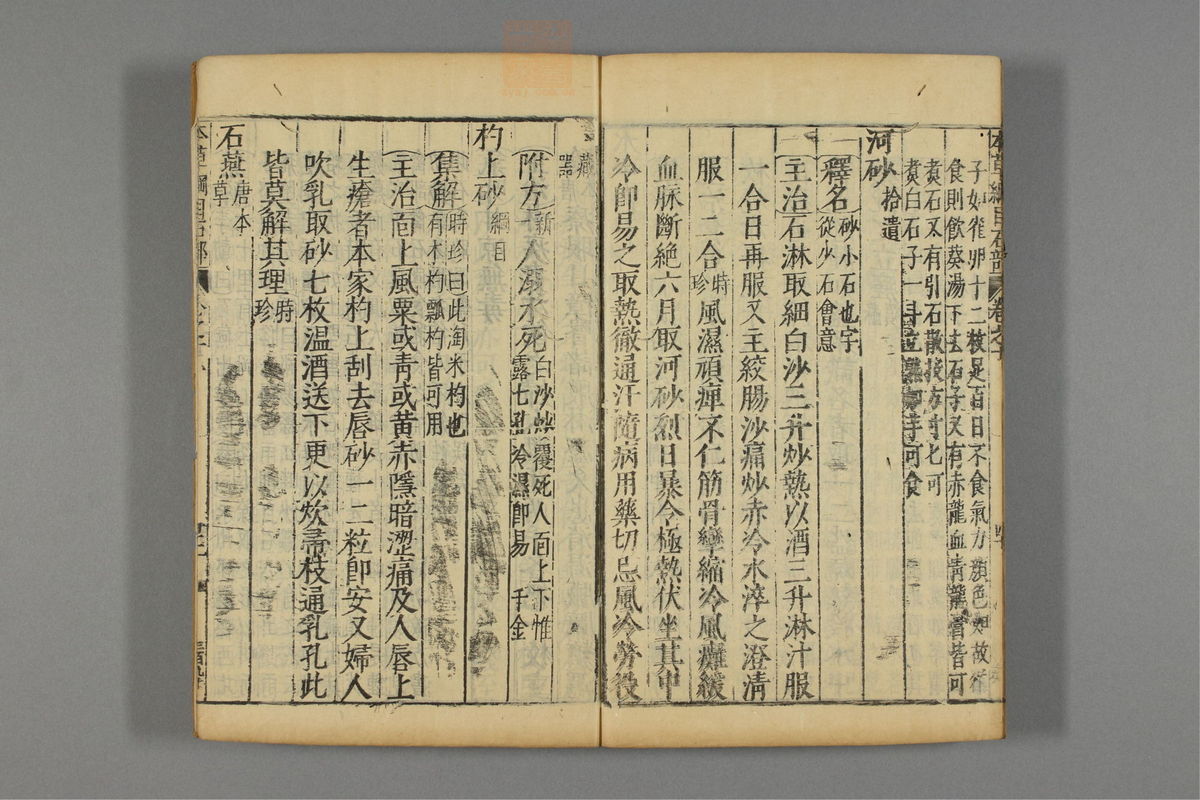 本草綱目石部 卷之十
子如雀卵十二枚足百日不食氣力顏色如故
食則飲葵湯下去石子又有赤龍血青龍膏皆可
煮石又有引石散投方寸匕可
煮白石子一斗立熟如芋可食
河砂拾遺
釋名砂小石也字
從少石會意
主治石淋取細白沙三升炒熱以酒三升淋汁服
一合日再服又主絞腸沙痛炒赤冷水淬之澄清
服一二合時珍風濕頑痺不仁筋骨攣縮冷風癱緩
血脉斷絕六月取河砂烈日暴令極熱伏坐其中
冷卽易之取熱徹通汗隨病用藥切忌風冷勞役
藏器
附方新一人溺水死白沙炒覆死人面上下惟
露七孔冷濕卽易 千金
杓上砂綱目
集解時珍曰此淘米杓也
有木杓瓢杓皆可用
主治面上風粟或青或黃赤隱暗澀痛及人唇上
生瘡者本家杓上刮去唇砂一二粒卽安又婦人
吹乳取砂七枚溫酒送下更以炊帚枝通乳孔此
皆莫解其理時珍
石燕唐本草
本草綱目石部